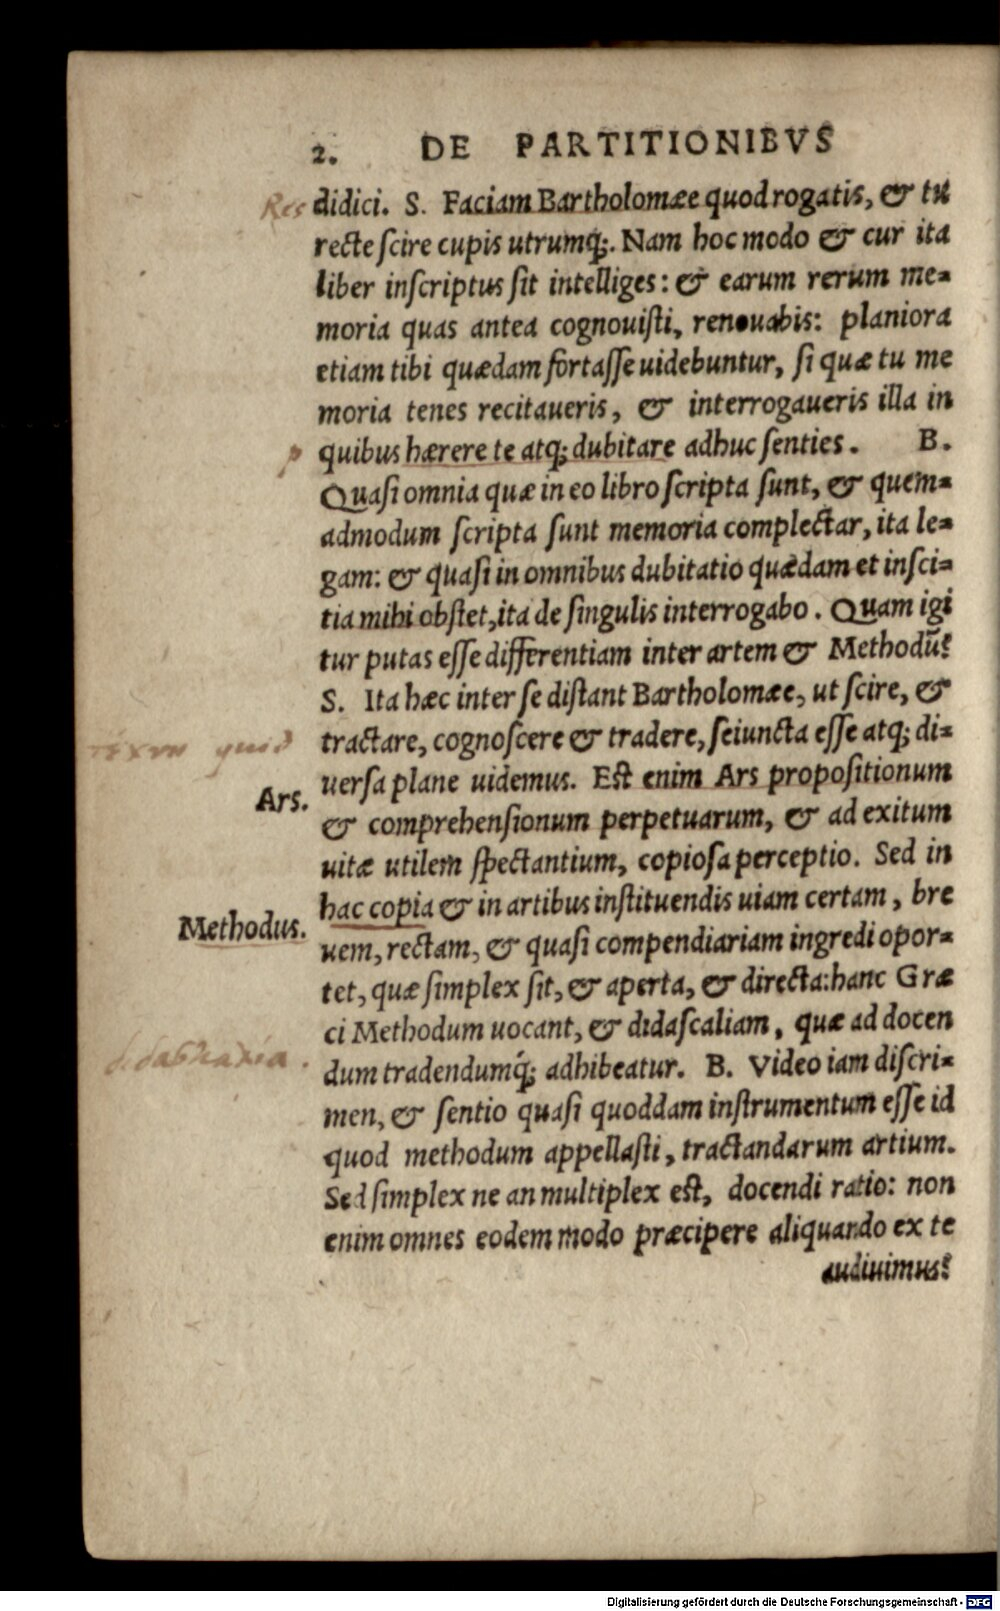 2. DE PARTITIONIBVS
Res didici. S. Faciam Bartholomæe quod rogatis, & tu
recte scire cupis utrumq;. Nam hoc modo & cur ita
liber inscriptus sit intelliges: & earum rerum me=
moria quas antea cognouisti, renouabis: planiora
etiam tibi quædam fortasse uidebuntur, si quæ tu me
moria tenes recitaueris, & interrogaueris illa in
p quibus hærere te atq; dubitare adhuc senties. B.
Quasi omnia quæ in eo libro scripta sunt, & quem=
admodum scripta sunt memoria complectar, ita le=
gam: & quasi in omnibus dubitatio quædam et insci=
tia mihi obstet, ita de singulis interrogabo. Quam igi
tur putas esse differentiam inter artem & Methodū?
S. Ita hæc inter se distant Bartholomæe, ut scire, &
tractare, cognoscere & tradere, seiuncta esse atq; di=
quid
uersa plane uidemus. Est enim Ars propositionum
Ars.
& comprehensionum perpetuarum, & ad exitum
uitæ utilem spectantium, copiosa perceptio. Sed in
hac copia & in artibus instituendis uiam certam, bre
Methodus.
uem, rectam, & quasi compendiariam ingredi opor=
tet, quæ simplex sit, & aperta, & directa: hanc Græ
ci Methodum uocant, & didascaliam, quæ ad docen
dum tradendumq́; adhibeatur. B. Video iam discri=
men, & sentio quasi quoddam instrumentum esse id
quod methodum appellasti, tractandarum artium.
Sed simplex ne an multiplex est, docendi ratio: non
enim omnes eodem modo præcipere aliquando ex te
audiuimus?
Digitalisierung gefördert durch die Deutsche Forschungsgemeinschaft - DFG